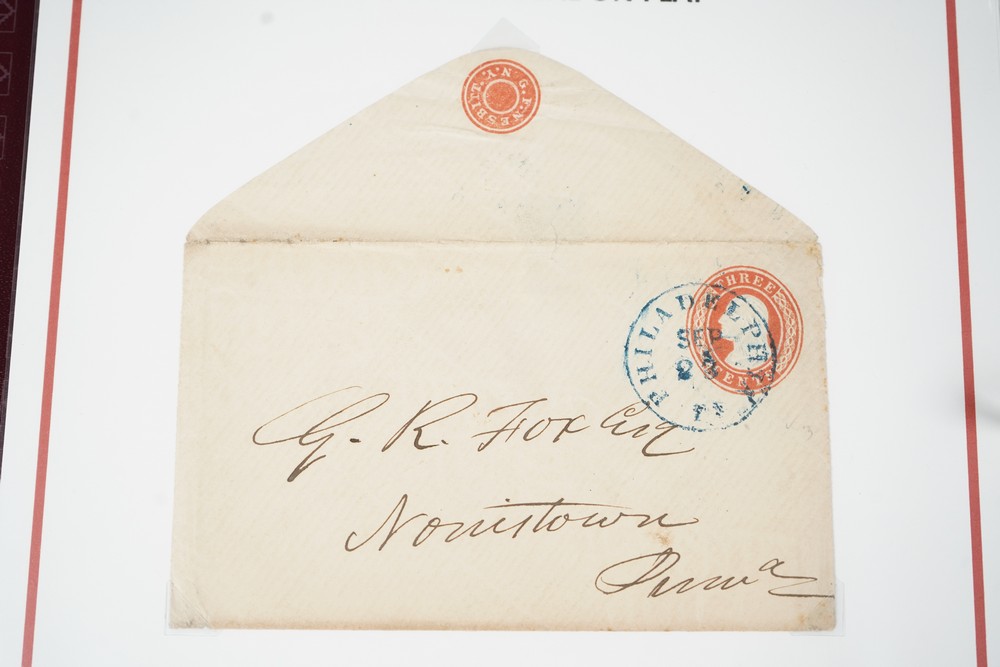 G. F. NESBITT. N.Y.
THREE
CENTS
PHILADELPHIA
SEP
G. R. Fox Esq
Norristown
Penna